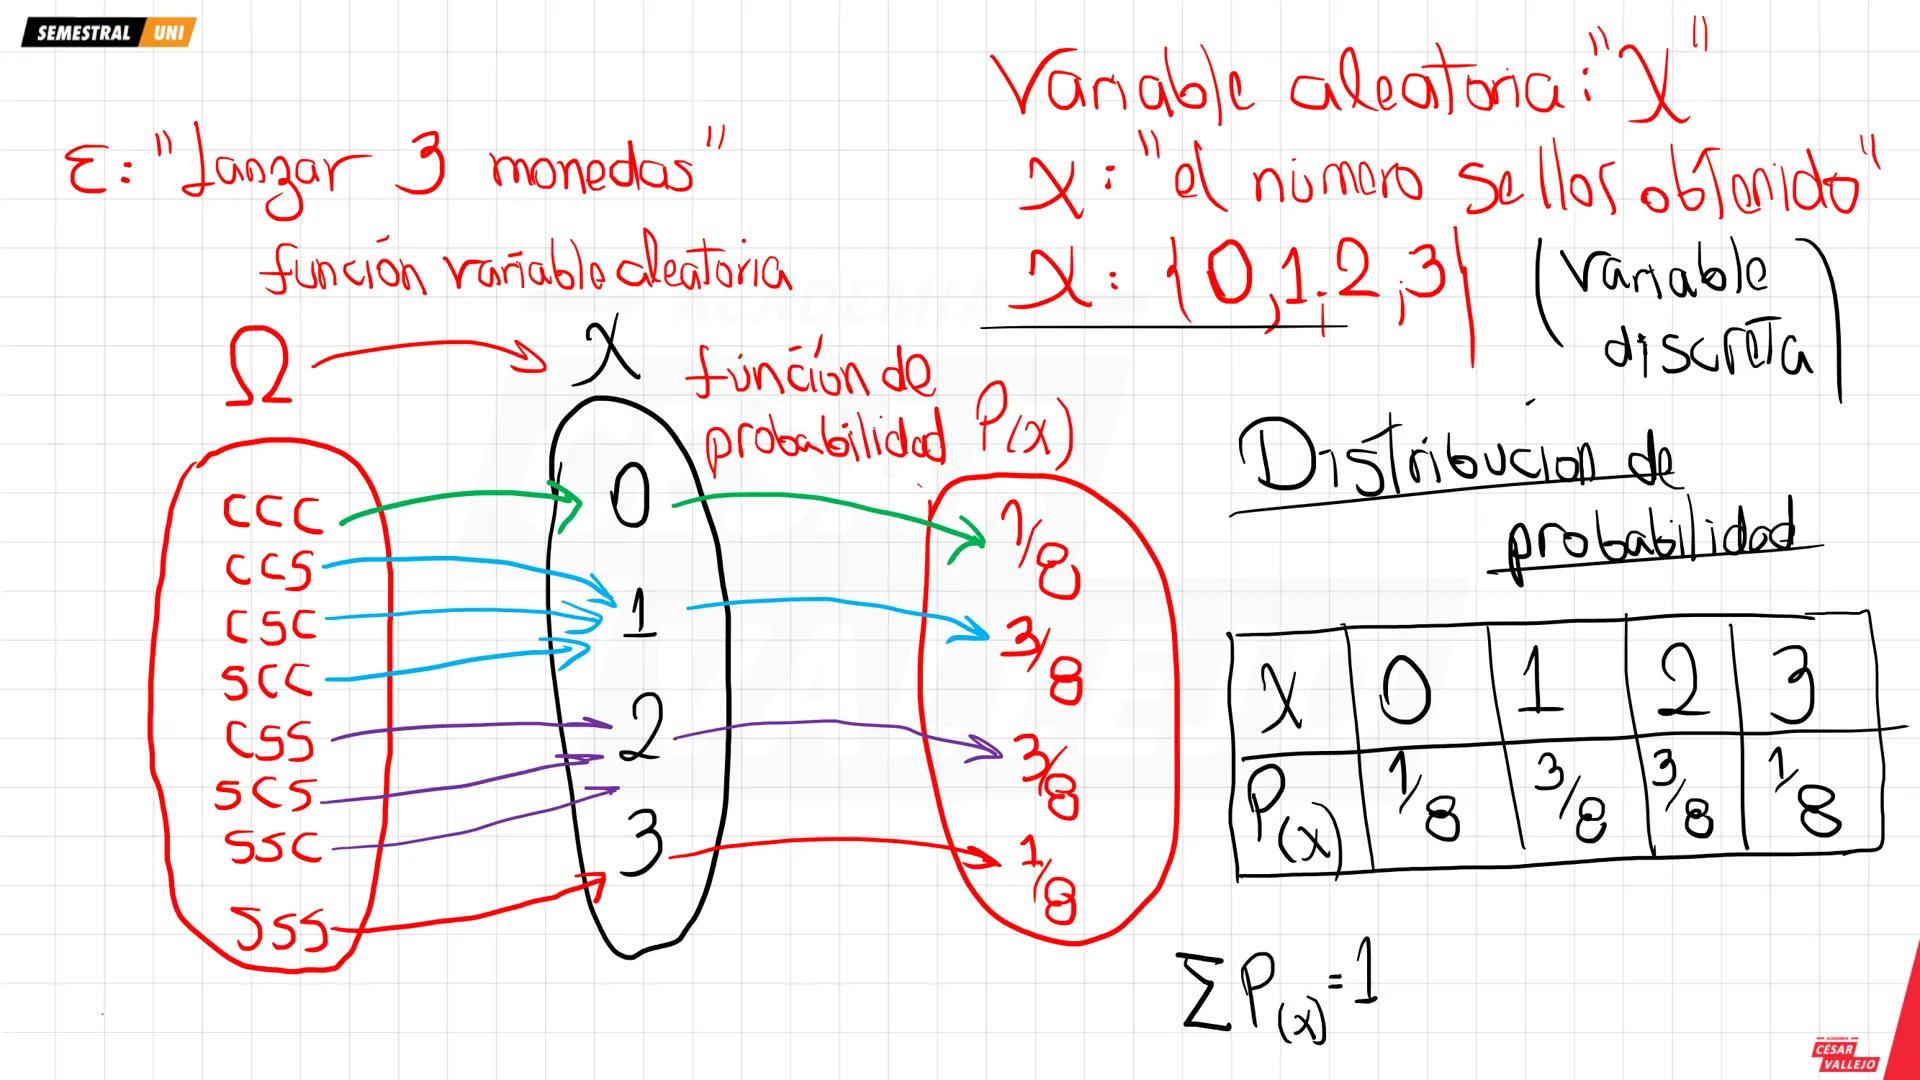 SEMESTRAL UNI
Variable aleatoria: "X"
ε: "Lanzar 3 monedas"
X: "el número sellos obtenido"
función variable aleatoria
X: {0,1;2;3}
(variable discreta)
Ω → X
función de
probabilidad P(x)
Distribución de
probabilidad
CCC 0 1/8
CCS
CSC 1 3/8
SCC
CSS 2 3/8
SCS
SSC
SSS 3 1/8
X 0 1 2 3
P(x) 1/8 3/8 3/8 1/8
ΣP(x)=1
ACADEMIA
CÉSAR
VALLEJO